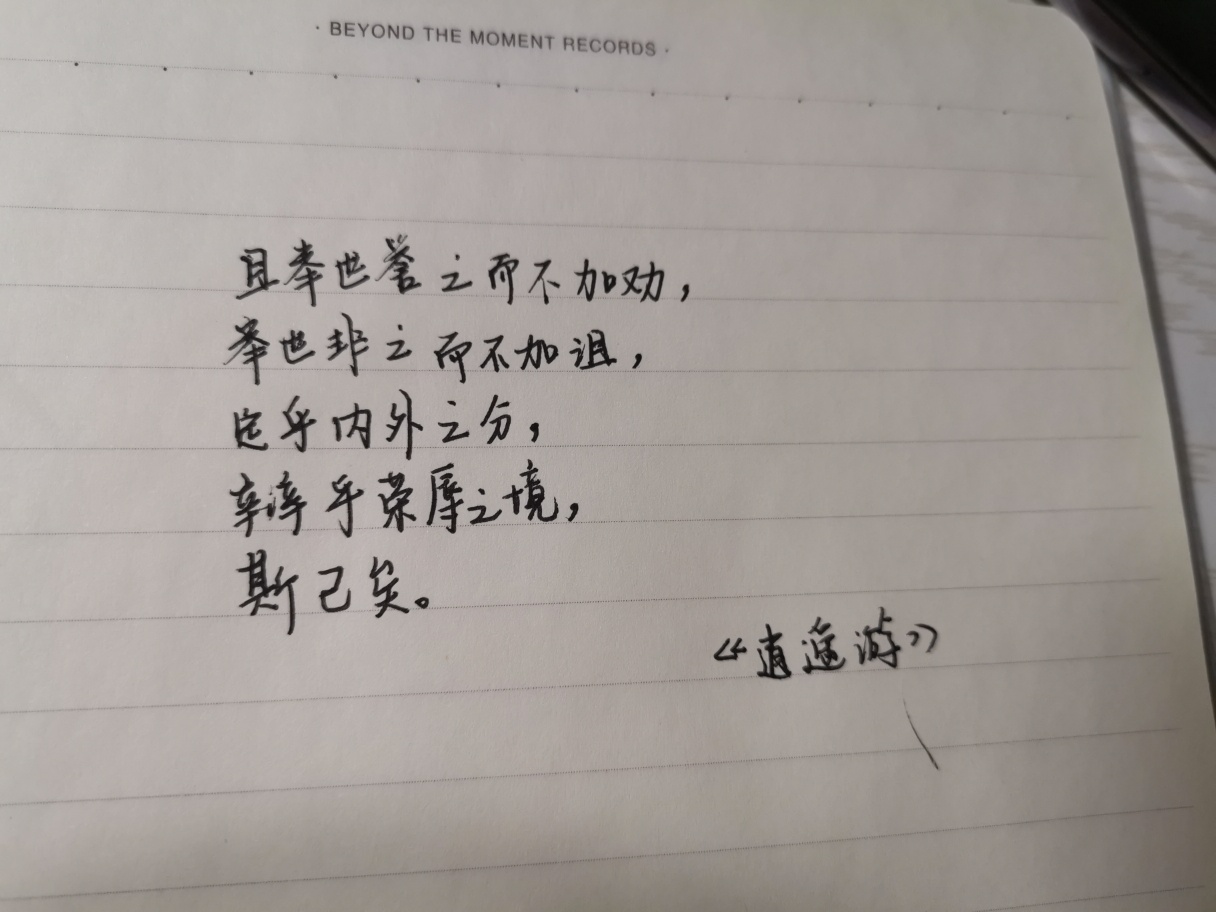 · BEYOND THE MOMENT RECORDS ·
且举世誉之而不加劝，
举世非之而不加沮，
定乎内外之分，
辩乎荣辱之境，
斯已矣。
《逍遥游》